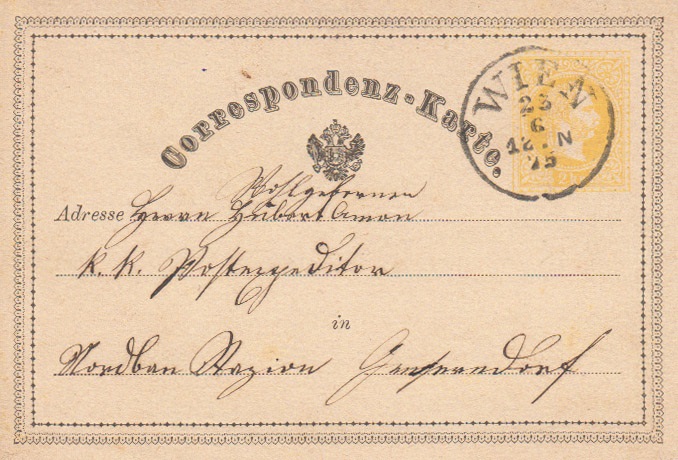 Correspondenz-Karte.
WIEN
23
6
12.N
75
Adresse Herrn Hubert Amon
k. k. Postexpeditor
in
Nordban Stazion Genserndorf